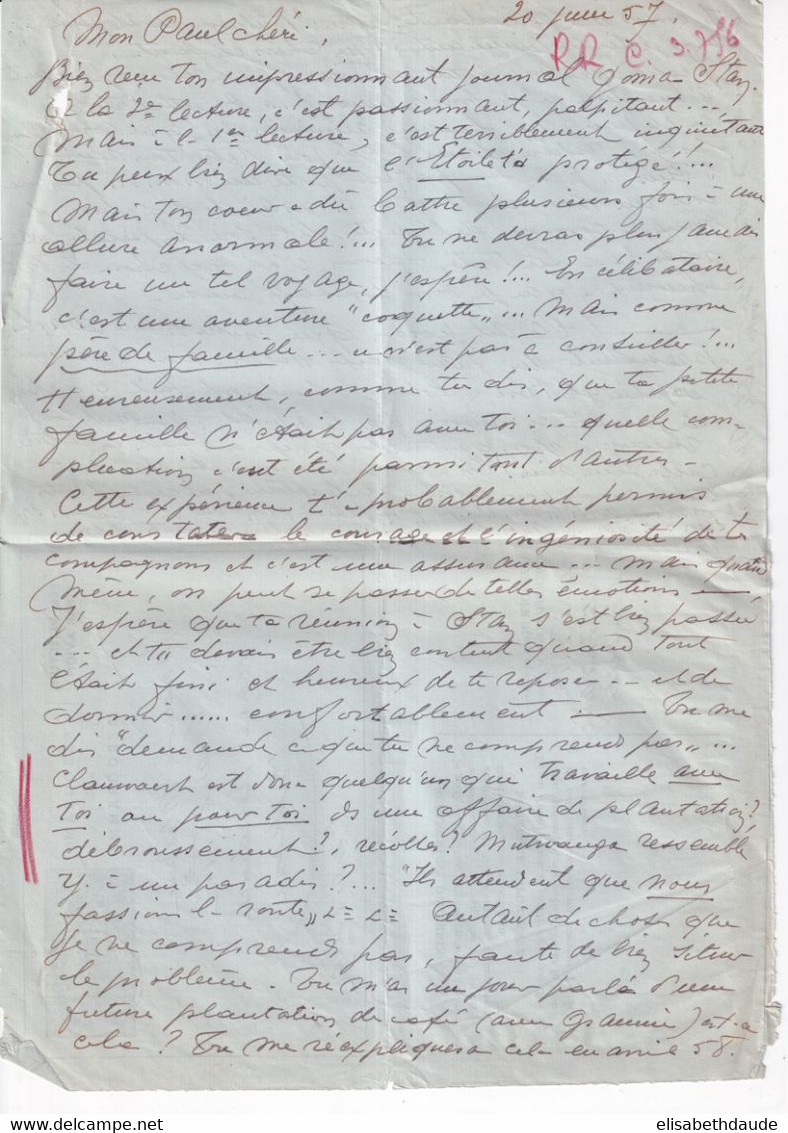 20 juin 57.
Mon Paul chéri,
RR C. 3.7.56
Bien reçu ton impressionnant journal Goma-Stan.
A la 2e lecture, c'est passionnant, palpitant...
Mais à la 1ere lecture, c'est terriblement inquiétant
Tu peux bien dire que l'Etoile t'a protégé!...
Mais ton coeur a dû battre plusieurs fois à une
allure anormale!... Tu ne devras plus jamais
faire un tel voyage, j'espère!... En célibataire,
c'est une aventure "coquette"... Mais comme
père de famille... ce n'est pas à conseiller!...
Heureusement, comme tu dis, que ta petite
famille n'était pas avec toi... quelle com-
plication c'eut été parmi tant d'autres -
Cette expérience t'a probablement permis
de constater le courage et l'ingéniosité de tes
compagnons et c'est une assurance... mais quand
même, on peut se passer de telles émotions —
J'espère que ta réunion à Stan s'est bien passée
... et tu devais être bien content quand tout
était fini et heureux de te reposer -- et de
dormir...... confortablement — Tu me
dis "demande ce que tu ne comprends pas"...
Clauwaert est donc quelqu'un qui travaille avec
toi ou pour toi ds une affaire de plantation?,
débroussement?, récoltes? Mutwanga ressemble
il à un paradis?... "Ils attendent que nous
fassions la route"
Autant de choses que
je ne comprends pas, faute de bien situer
le problème. Tu m'as un jour parlé d'une
future plantation de café (avec ) est-ce
cela? Tu me réexpliqueras cela en avril 58.
elisabethdaude